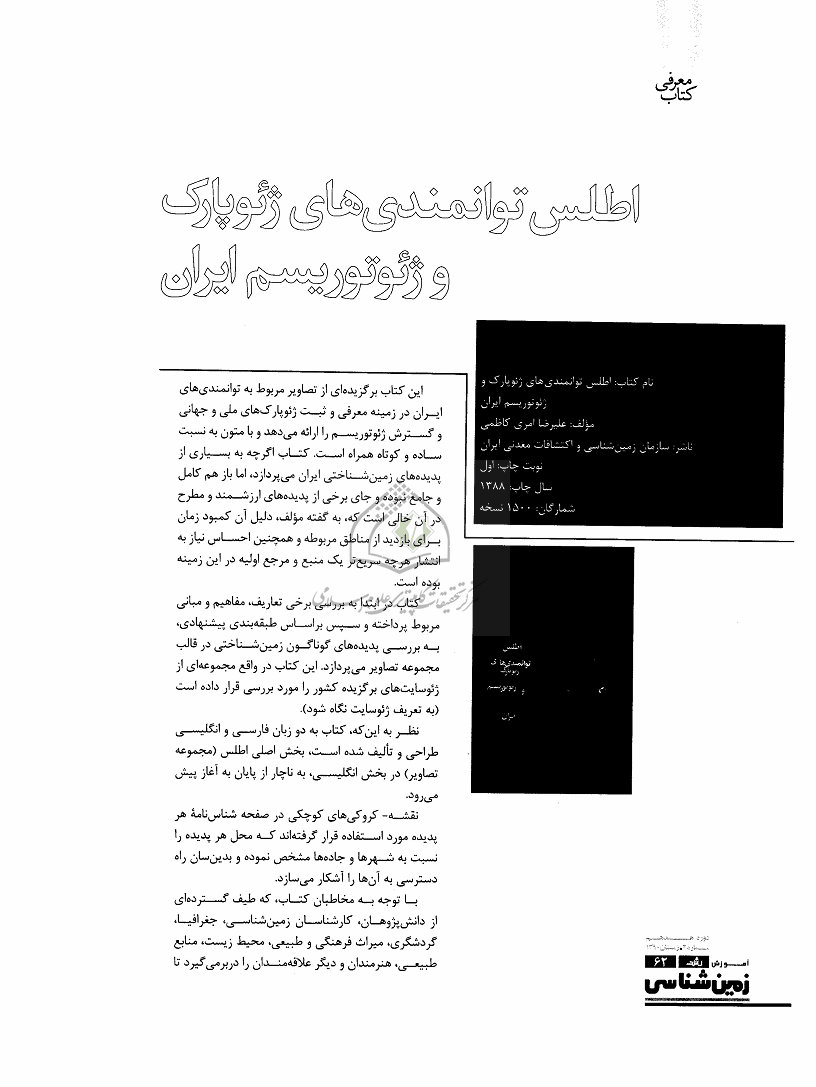 معرفی
کتاب
اطلس توانمندی‌های ژئوپارک
و ژئوتوریسم ایران
نام کتاب: اطلس توانمندی‌های ژئوپارک و
ژئوتوریسم ایران
مؤلف: علیرضا امری کاظمی
ناشر: سازمان زمین‌شناسی و اکتشافات معدنی ایران
نوبت چاپ: اول
سال چاپ: ۱۳۸۸
شمارگان: ۱۵۰۰ نسخه
این کتاب برگزیده‌ای از تصاویر مربوط به توانمندی‌های
ایران در زمینه معرفی و ثبت ژئوپارک‌های ملی و جهانی
و گسترش ژئوتوریسم را ارائه می‌دهد و با متون به نسبت
ساده و کوتاه همراه است. کتاب اگرچه به بسیاری از
پدیده‌های زمین‌شناختی ایران می‌پردازد، اما باز هم کامل
و جامع نبوده و جای برخی از پدیده‌های ارزشمند و مطرح
در آن خالی است که، به گفته مؤلف، دلیل آن کمبود زمان
برای بازدید از مناطق مربوطه و همچنین احساس نیاز به
انتشار هرچه سریع‌تر یک منبع و مرجع اولیه در این زمینه
بوده است.
کتاب در ابتدا به بررسی برخی تعاریف، مفاهیم و مبانی
مربوط پرداخته و سپس براساس طبقه‌بندی پیشنهادی،
به بررسی پدیده‌های گوناگون زمین‌شناختی در قالب
مجموعه تصاویر می‌پردازد. این کتاب در واقع مجموعه‌ای از
ژئوسایت‌های برگزیده کشور را مورد بررسی قرار داده است
(به تعریف ژئوسایت نگاه شود).
نظر به این‌که، کتاب به دو زبان فارسی و انگلیسی
طراحی و تألیف شده است، بخش اصلی اطلس (مجموعه
تصاویر) در بخش انگلیسی، به ناچار از پایان به آغاز پیش
می‌رود.
نقشه- کروکی‌های کوچکی در صفحه شناس‌نامهٔ هر
پدیده مورد استفاده قرار گرفته‌اند که محل هر پدیده را
نسبت به شهرها و جاده‌ها مشخص نموده و بدین‌سان راه
دسترسی به آن‌ها را آشکار می‌سازد.
با توجه به مخاطبان کتاب، که طیف گسترده‌ای
از دانش‌پژوهان، کارشناسان زمین‌شناسی، جغرافیا،
گردشگری، میراث فرهنگی و طبیعی، محیط زیست، منابع
طبیعی، هنرمندان و دیگر علاقه‌مندان را دربرمی‌گیرد تا
اطلس
توانمندی‌ها
ژئوپارک
و ژئوتوریسم
ایران
مرکز تحقیقات کامپیوتری علوم اسلامی
آموزش رشد ۶۲
زمین‌شناسی